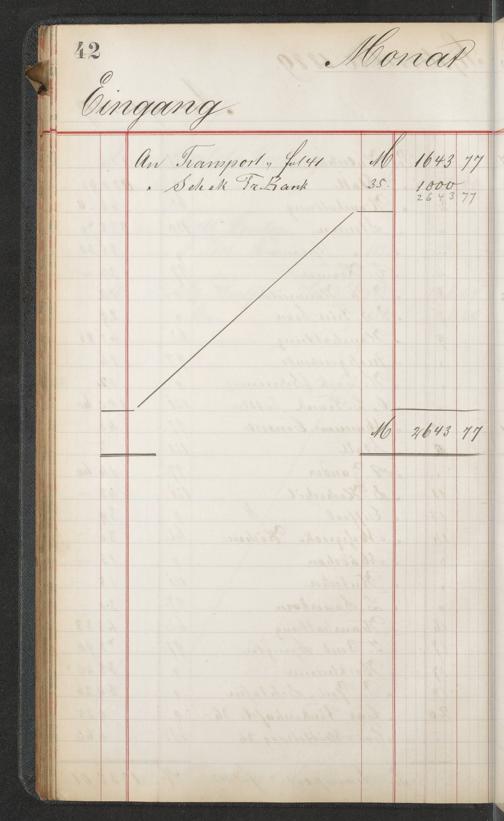 42
Monat
Eingang.
An Transport, fol 41 M 1643 77
" Schek Fr. Bank 35. 1000
2643 77
M 2643 77